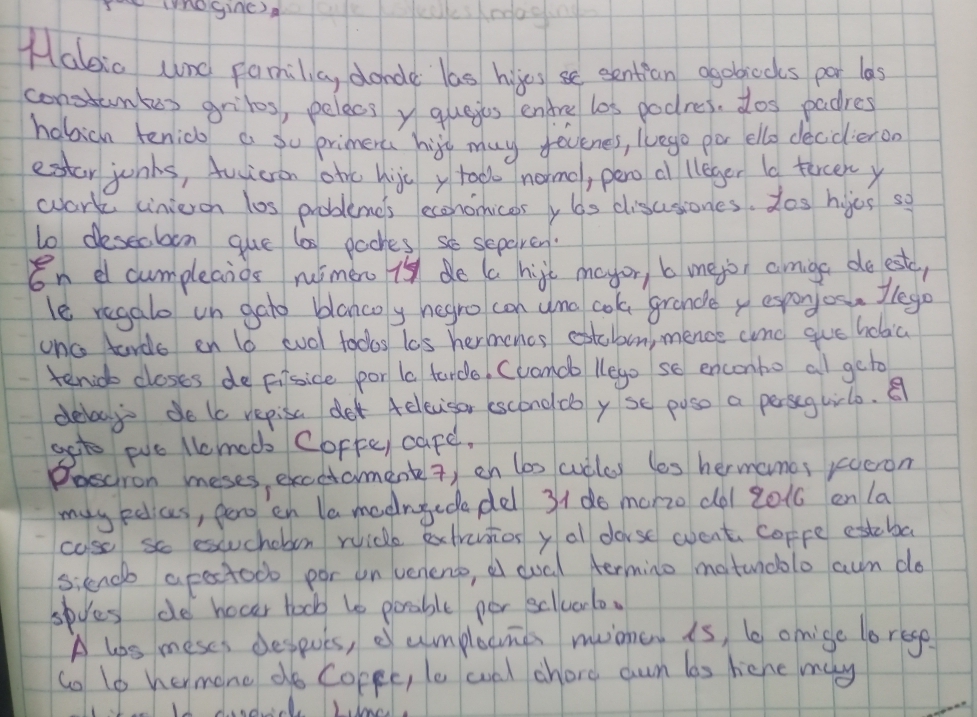 imagine).
Había una familia, donde las hijas se sentían agobiadas por las
constantes gritos, peleas y quejas entre los padres. Los padres
habían tenido a su primera hija muy jóvenes, luego por ello decidieron
estar juntos, tuvieron otra hija y todo normal, pero al lleger la tercer y
cuarta vinieron los problema's económicos y las discusiones. Los hijas so
lo deseaban que los padres se separen.
En el cumpleaños número 14 de la hija mayor, la mejor amiga de esta,
le regalo un gato blanco y negro con una cola grande y esponjosa. Llego
una tarde en la cual todas las hermanas estaban, menos una que había
tenido clases de física por la tarde. Cuando llego se encontro al gato
debajo de la repisa del televisor escondido y se puso a perseguirlo. El
gato fue llamado Coffe, café.
Pasaron meses, exactamente 7, en los cuales las hermanas fueron
muy felices, pero en la madrugada del 31 de marzo del 2016 en la
casa se escuchaban ruido extraños y al darse cuenta Coffe estaba
siendo afectado por un veneno, el cual termino matandolo aun de
spues de hacer todo lo posible por salvarlo.
A los meses después, el cumpleaños número 15, la amiga le rega
lo la hermana de Coffe, la cual ahora aun las tiene muy
la Luna.